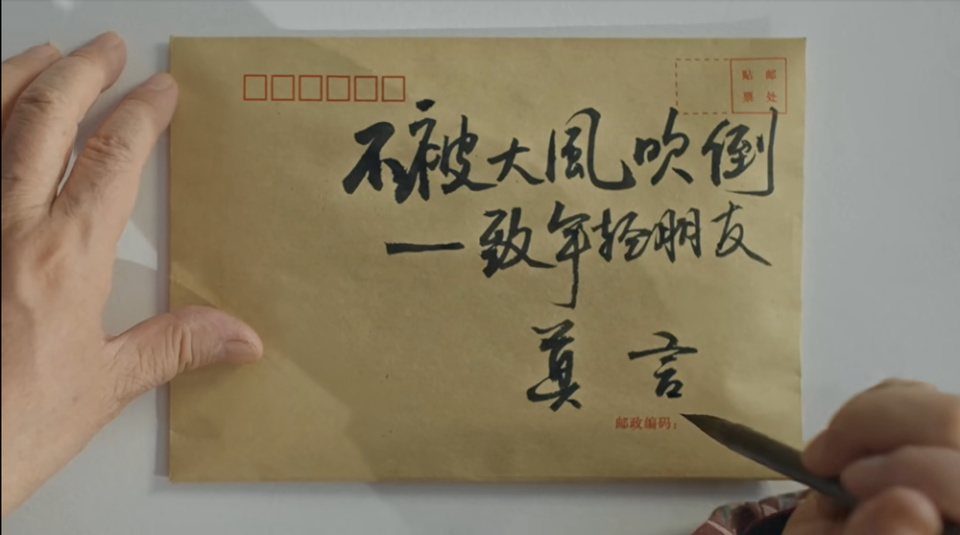 贴邮
票处
不被大風吹倒
—致年轻朋友
莫言
邮政编码: